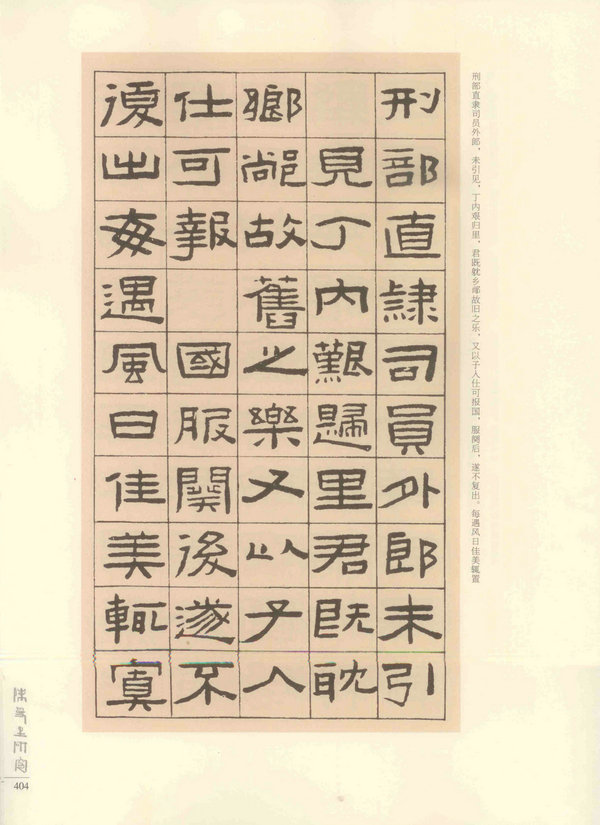 刑部直隶司员外郎，未引见，丁内艰归里，君既躭乡故旧之乐，又以子人仕可报国，服阕后，遂不复出。每遇风日佳美辄置
刑部直隸司員外郎未引
見丁內艱歸里君既耽
鄉故舊之樂又以子人
仕可報 國服闋後遂不
復出每遇風日佳美輒寘
404